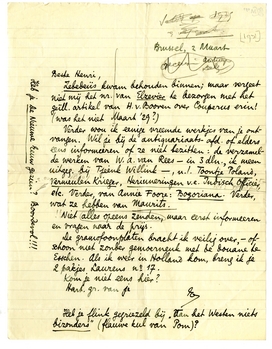 Brussel, 2 Maart
[1931]
Beste Henri,
Zebedeüs kwam behouden binnen; maar vergeet
niet mij het nr. van Elsevier te bezorgen met het
geïll. artikel van H. v. Booven over Couperus erin!
(was het niet Maart '29?)
Verder wou ik eenige vreemde werkjes van je ont-
vangen. Wil je bij de antiquariaat-afd. of elders
eens informeeren of ze niet bezitten: de verzamel-
de werken van W. A. van Rees – in 3 dln., ik meen
uitgeg. bij Tjeenk Willink –, n.l. Toontje Poland,
Vermeulen Krieger, Herinneringen v.e. Indisch Officier,
en Verder, van Anna Fogra: Bogoriana. Verder,
wat ze hebben van Maurits.
Niet alles opeens zenden, maar eerst informeeren
en vragen naar de prijs.
De gramofoonplaten bracht ik veilig over, –
schoon niet zonder gemoordend met de douane te
Esschen. Als ik weer in Holland kom, breng ik je
2 pakjes Laurens nº 17.
Kom je niet eens hier?
Hart. gr. van je
Heb je flink gegriezeld bij „Van het Westen niets
bizonders" (flauwe kul van Pom)?
Heb je de Nieuwe Eeuw gezien? Boordevol!!!